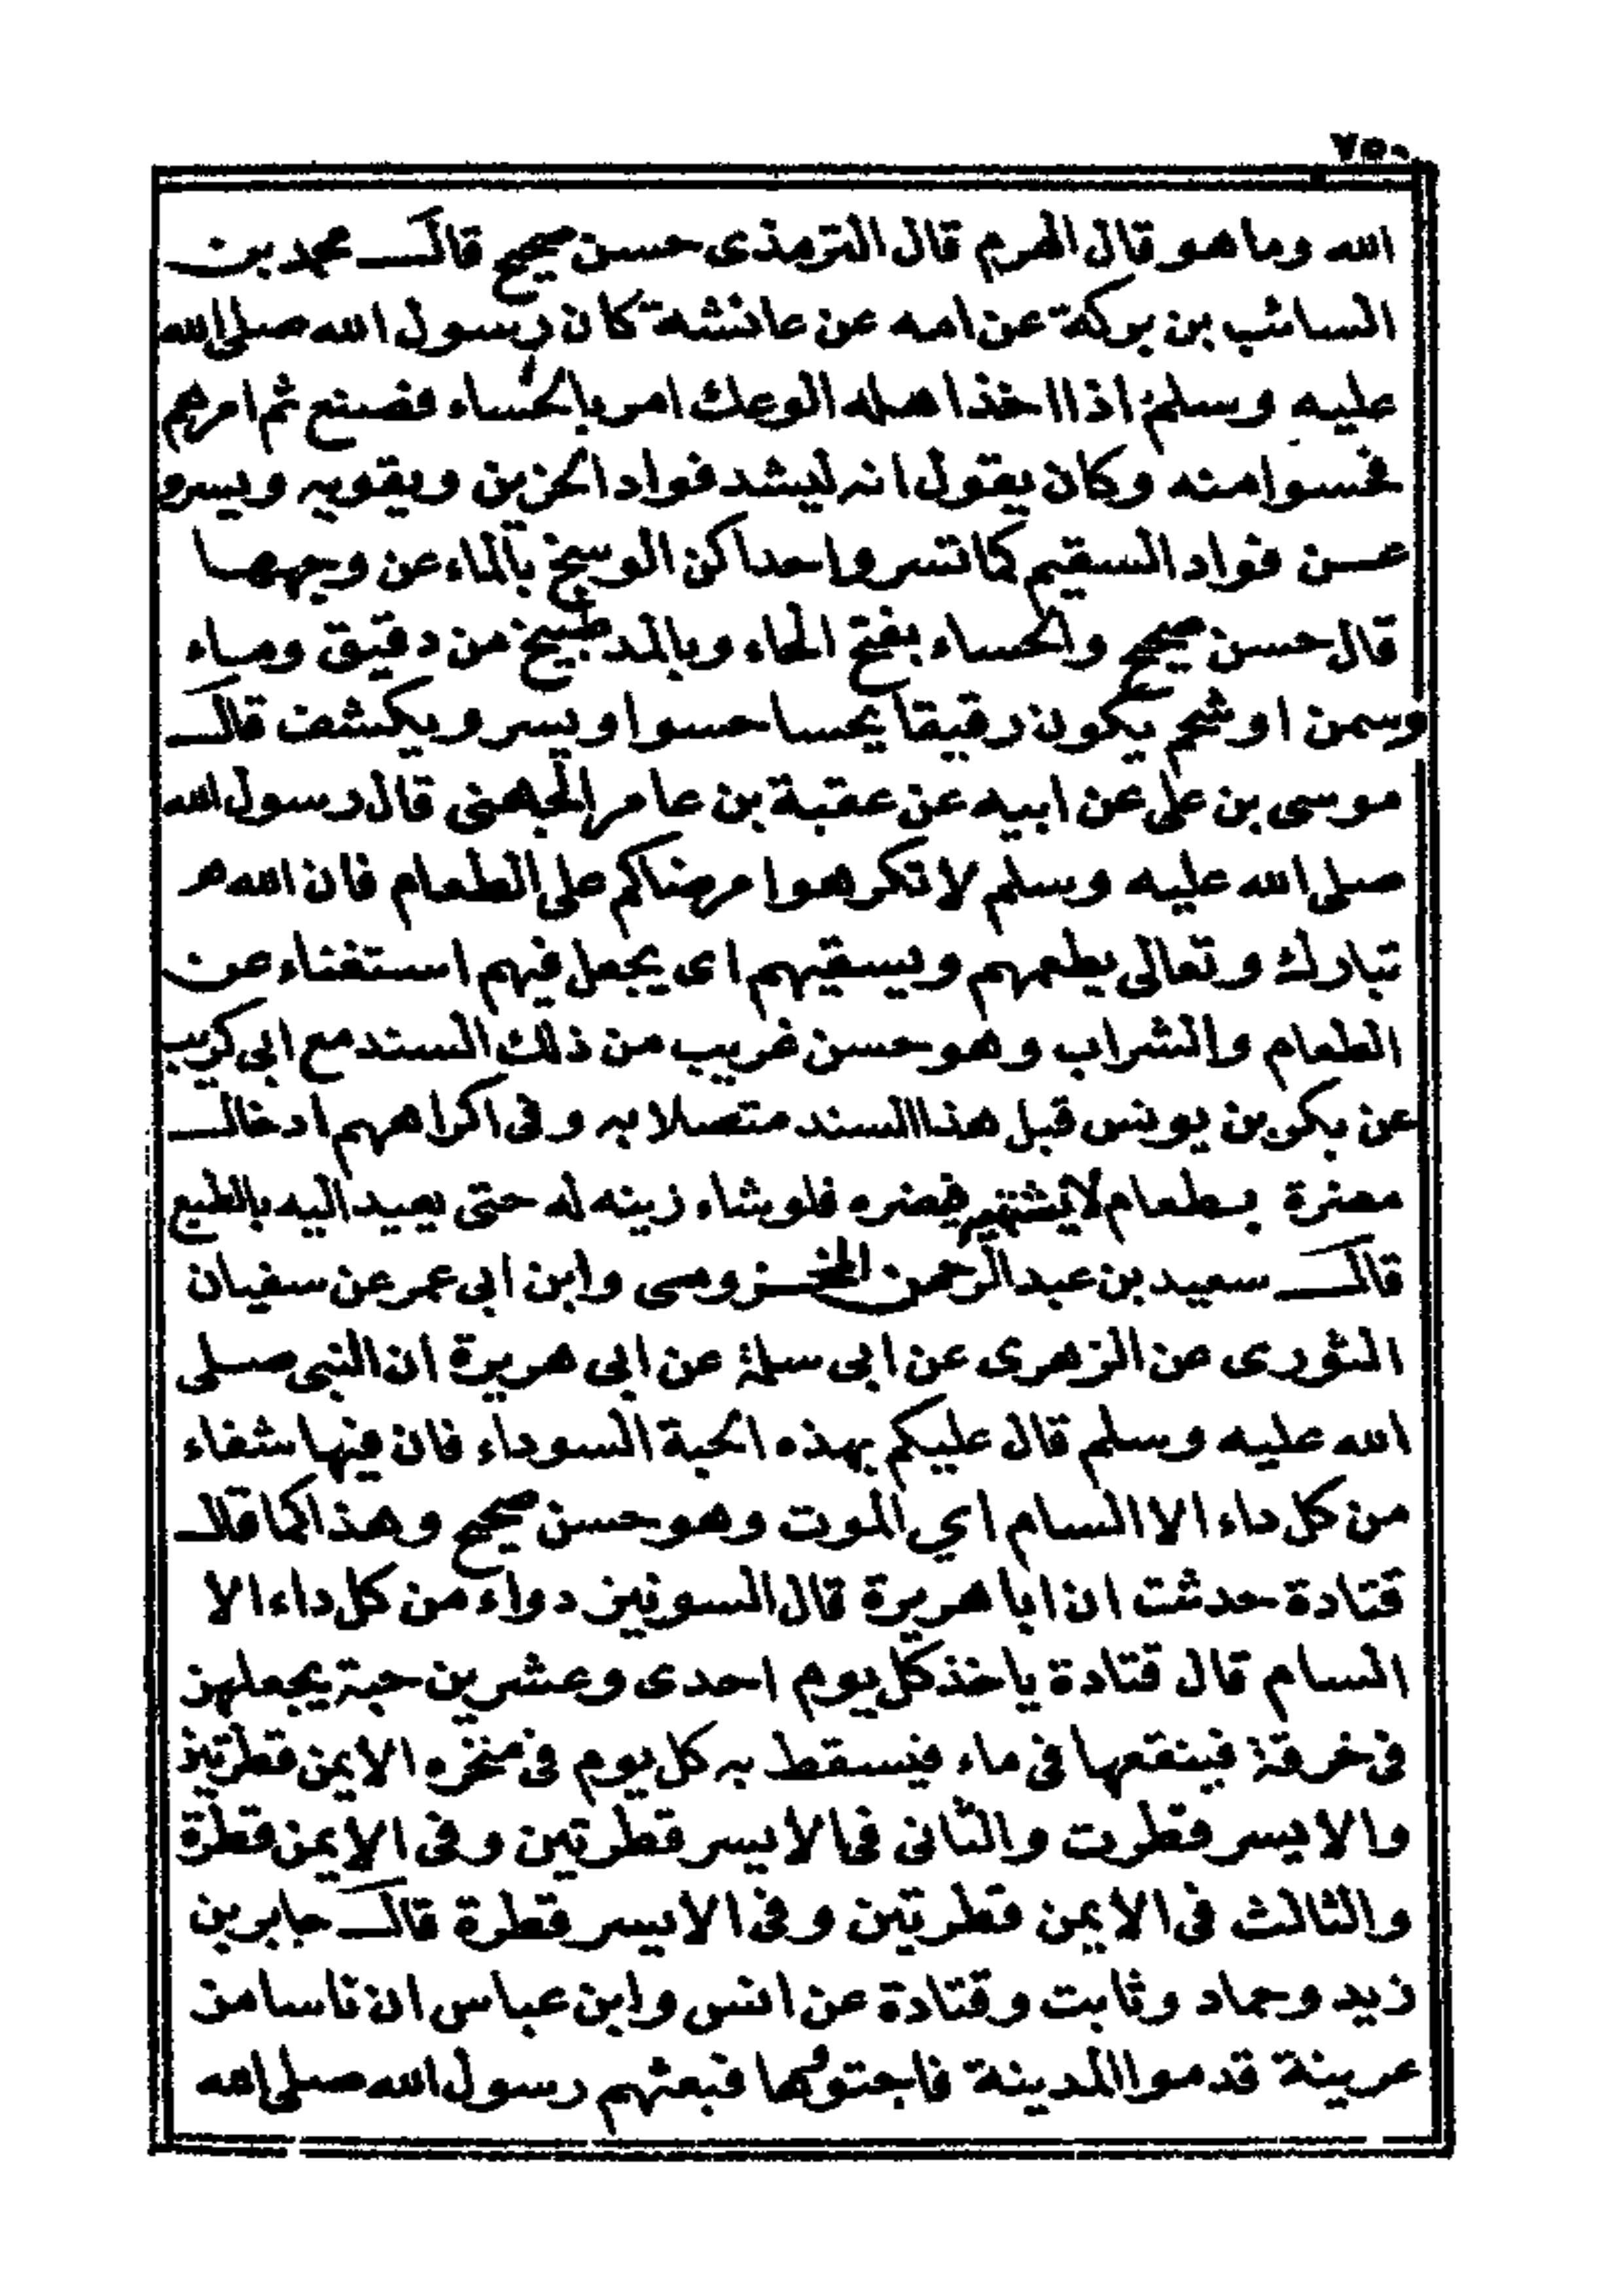 ٧٥٠
الله وما هو قال الهرم قال الترمذى حسن صحيح قال محمد بن
السائب بن بركة عن امه عن عائشة كان رسول الله صلى الله
عليه وسلم اذا اخذ اهله الوعك امر بالحساء فصنع ثم امرهم
فحسوا منه وكان يقول انه ليشد فواد الحزين ويقويه ويسرو
عن فواد السقيم كما تسر واحداكن الوسخ بالماء عن وجهها
قال حسن صحيح والحساء بفتح الحاء وبالمد طبيخ من دقيق وماء
وسمن او شحم يكون رقيقا يحسا حسوا ويسر ويكشف قال
موسى بن على عن ابيه عن عقبة بن عامر الجهنى قال رسول الله
صلى الله عليه وسلم لا تكرهوا مرضاكم على الطعام فان الله هر
تبارك وتعالى يطعمهم ويسقيهم اى يجعل فيهم استغناء عن
الطعام والشراب وهو حسن غريب من ذلك السند مع ابى كريب
عن بكر بن يونس قبل هذا السند متصلا به وفى اكراههم ادخال
مضرة بطعام لا يشتهيه فيضره فلو شاء زينه له حتى يعيد اليه بالطبع
قال سعيد بن عبد الرحمن المخزومى وابن ابى عمر عن سفيان
الثورى عن الزهرى عن ابى سلمة عن ابى هريرة ان النبى صلى
الله عليه وسلم قال عليكم بهذه الحبة السوداء فان فيها شفاء
من كل داء الا السام اي الموت وهو حسن صحيح وهذا كما قال
قتادة حدثت ان ابا هريرة قال السونيز دواء من كل داء الا
السام قال قتادة ياخذ كل يوم احدى وعشرين حبة يجعلهن
فى خرقة فينقعها فى ماء فيسقط به كل يوم فى منخره الايمن قطرتين
والايسر قطرت والثانى فى الايسر قطرتين وفى الايمن قطرة
والثالث فى الايمن قطرتين وفى الايسر قطرة قال جابر بن
زيد وحماد وثابت وقتادة عن انس وابن عباس ان ناسا من
عرينة قدموا المدينة فاجتووها فبعثهم رسول الله صلى الله